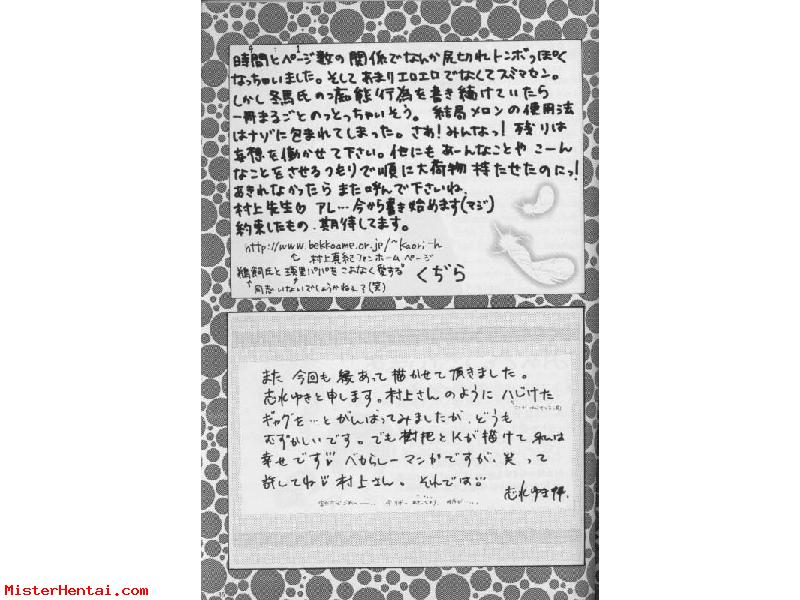 時間とページ数の関係でなんか尻切れトンボっぽく
なっちゃいました。そしてあまりエロエロでなくてスミマセン。
しかし 氏の痴態行為を書き続けていたら
一冊まるごとのっとっちゃいそう。結局メロンの使用法
はナゾに包まれてしまった。さあ!みんなっ!残りは
妄想を働かせて下さい。他にもあーんなことや こーん
なことをさせるつもりで順に大荷物 持たせたのにっ!
あきれなかったら また呼んで下さいね。
村上先生♡ アレ…今から書き始めます(マジ)
約束したもの、期待してます。
http://www.bekkoame.or.jp/~kaori-h
村上真紀ファンホームページ
鵜飼氏と パパをこよなく愛する くぢら
同志いないでしょうかねえ?(笑)
また 今回も 縁あって描かせて頂きました。
志水ゆきと申します。村上さんのように ハじけた
ギャグを…と がんばってみましたが、どうも
むずかしいです。でも 枇杷とKが描けて 私は
幸せです♡ べもらしーマンガですが、笑って
許してね♡ 村上さん。それでは
志水ゆき拝.
MisterHentai.com